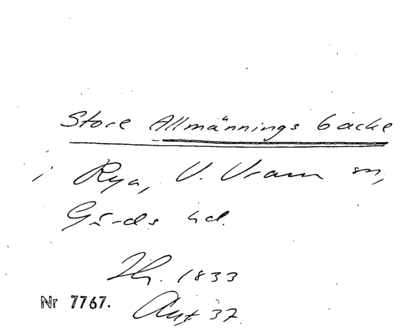 Store Allmännings backe
i Rya, V. Vram sn,
Gärds hd.
1833
Nr 7767. Aug 37